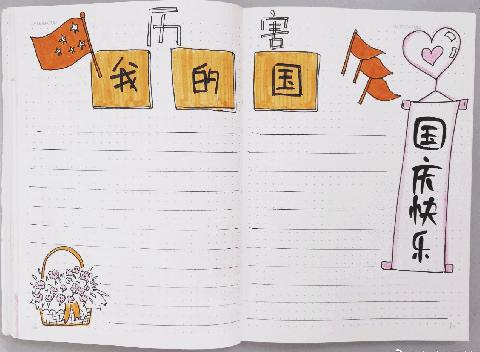 厉害
我的国
国庆快乐